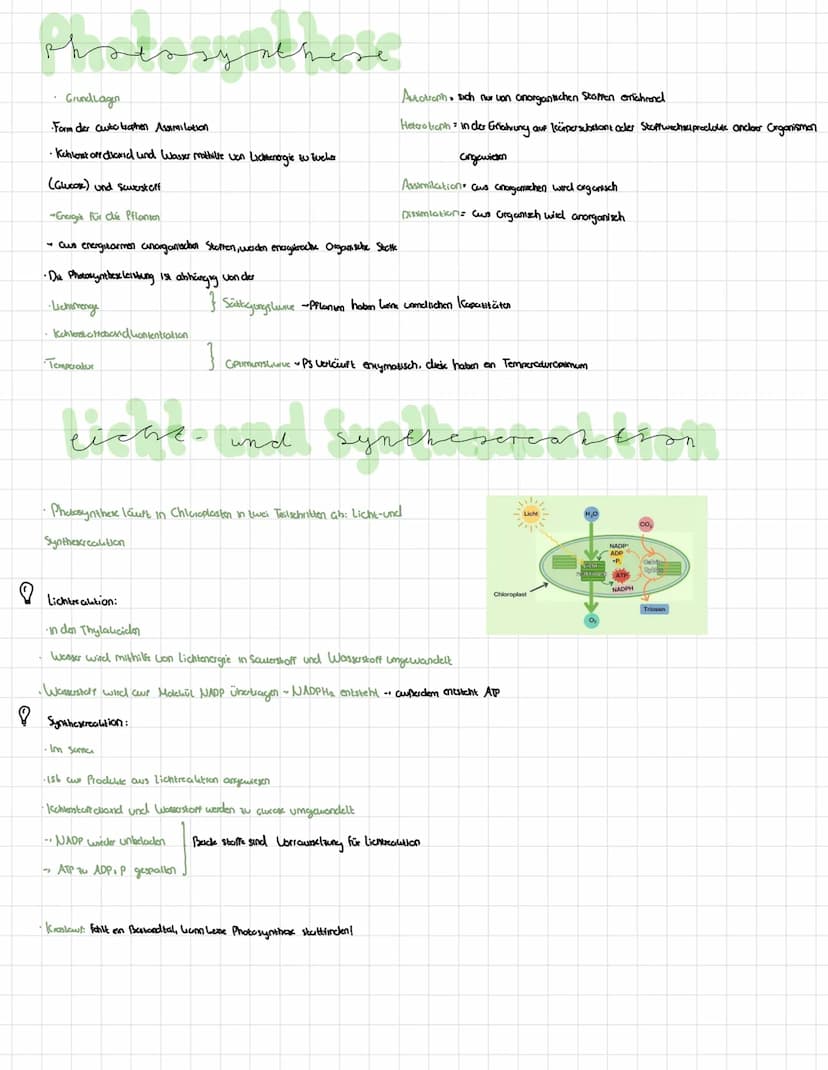 Photosynthese
· Grundlagen
· Form der autotrophen Assimilation
· Kohlenstoffdioxid und Wasser mithilfe von Lichtenergie zu Zucker
(Glucose) und Sauerstoff
→ Energie für die Pflanzen
→ aus energiearmen anorganischen Stoffen, werden energiereiche Organische Stoffe
· Die Photosyntheseleistung ist abhängig von der
· Lichtmenge } Sättigungskurve → Pflanzen haben keine unendlichen Kapazitäten
· Kohlenstoffdioxidkonzentration
· Temperatur } Optimumskurve → PS verläuft enzymatisch, diese haben ein Temperaturoptimum
Autotroph = sich nur von anorganischen Stoffen ernährend
Heterotroph = in der Ernährung auf Körpersubstanz oder Stoffwechselprodukte anderer Organismen
angewiesen
Assimilation = aus anorganischen wird organisch
Dissimilation = aus Organisch wird anorganisch
Licht- und Synthesereaktion
· Photosynthese läuft in Chloroplasten in zwei Teilschritten ab: Licht- und
Synthesereaktion
Licht
H₂O
CO₂
NADP⁺
ADP
+P
ATP
NADPH
Chloroplast
Triosen
O₂
Lichtreaktion:
· in den Thylakoiden
· Wasser wird mithilfe von Lichtenergie in Sauerstoff und Wasserstoff umgewandelt
· Wasserstoff wird auf Molekül NADP übertragen → NADPH₂ entsteht → außerdem entsteht ATP
Synthesereaktion:
· Im Stroma
· Ist auf Produkte aus Lichtreaktion angewiesen
· Kohlenstoffdioxid und Wasserstoff werden zu Glucose umgewandelt
→ NADP wieder unbeladen
→ ATP zu ADP+P gespalten
Beide Stoffe sind Vorraussetzung für Lichtreaktion
· Kreislauf: Fehlt ein Bestandteil, kann keine Photosynthese stattfinden!